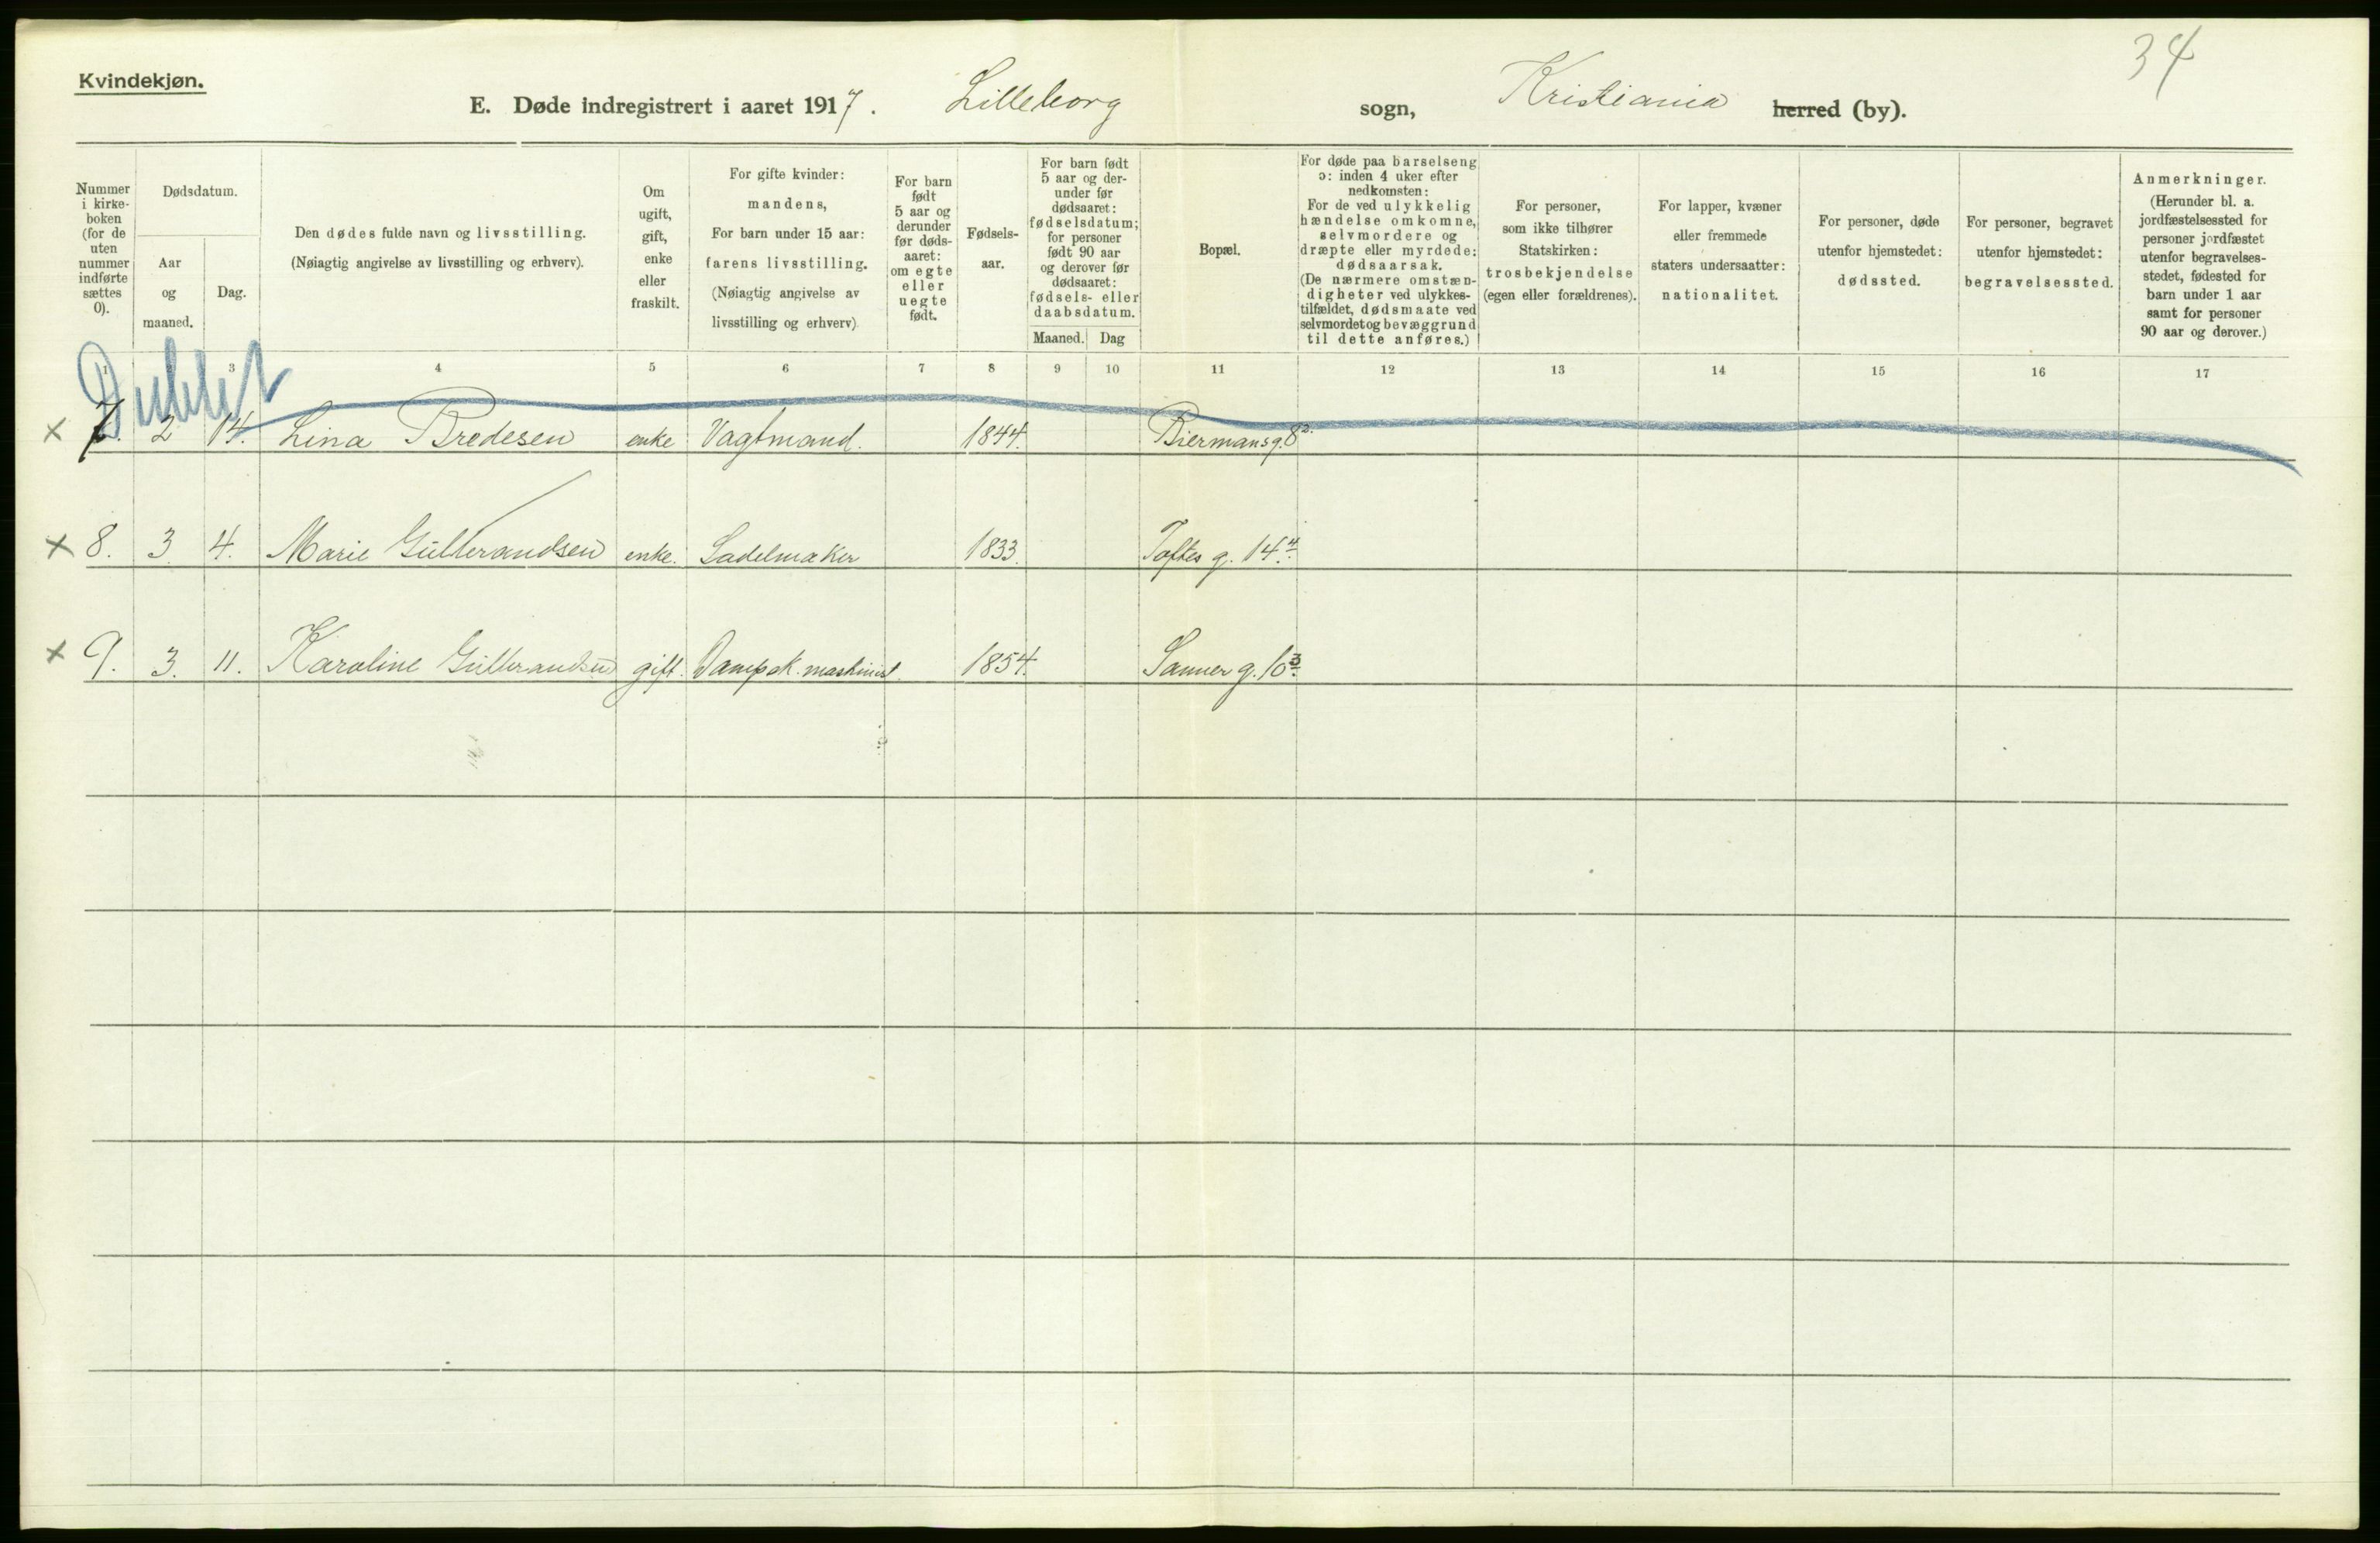 34
Kvindekjøn.
E. Døde indregistrert i aaret 1917. Lilleborg sogn, Kristiania herred (by).
Nummer i kirke-boken (for de uten nummer indførte sættes 0).
Dødsdatum.
Aar og maaned.
Dag.
Den dødes fulde navn og livsstilling.
(Nøiagtig angivelse av livsstilling og erhverv).
Om ugift, gift, enke eller fraskilt.
For gifte kvinder:
mandens,
For barn under 15 aar:
farens livsstilling.
(Nøiagtig angivelse av
livsstilling og erhverv)
For barn født 5 aar og derunder før døds-aaret: om egte eller uegte født.
Fødsels-aar.
For barn født 5 aar og der-under før dødsaaret: fødselsdatum; for personer født 90 aar og derover før dødsaaret: fødsels- eller daabsdatum.
Maaned. Dag
Bopæl.
For døde paa barselseng
ɔ: inden 4 uker efter
nedkomsten:
For de ved ulykkelig
hændelse omkomne,
selvmordere og
dræpte eller myrdede:
dødsaarsak.
(De nærmere omstæn-
digheter ved ulykkes-
tilfældet, dødsmaate ved
selvmordet og bevæggrund
til dette anføres.)
For personer,
som ikke tilhører
Statskirken:
trosbekjendelse
(egen eller forældrenes).
For lapper, kvæner
eller fremmede
staters undersaatter:
nationalitet.
For personer, døde
utenfor hjemstedet:
dødssted.
For personer, begravet
utenfor hjemstedet:
begravelsessted.
Anmerkninger.
(Herunder bl. a.
jordfæstelsessted for
personer jordfæstet
utenfor begravelses-
stedet, fødested for
barn under 1 aar
samt for personer
90 aar og derover.)
1 3 4 5 6 7 8 9 10 11 12 13 14 15 16 17
Dublet
x 7. 2 14. Lina Bredesen enke Vagtmand. 1844. Biermansg. 8 2.
x 8. 3 4. Marie Gulbrandsen enke. Sadelmaker 1833. Toftes g. 14 4.
x 9. 3. 11. Karoline Gulbrandsen gift. Dampsk. maskinist. 1854. Sanner g. 10 3.